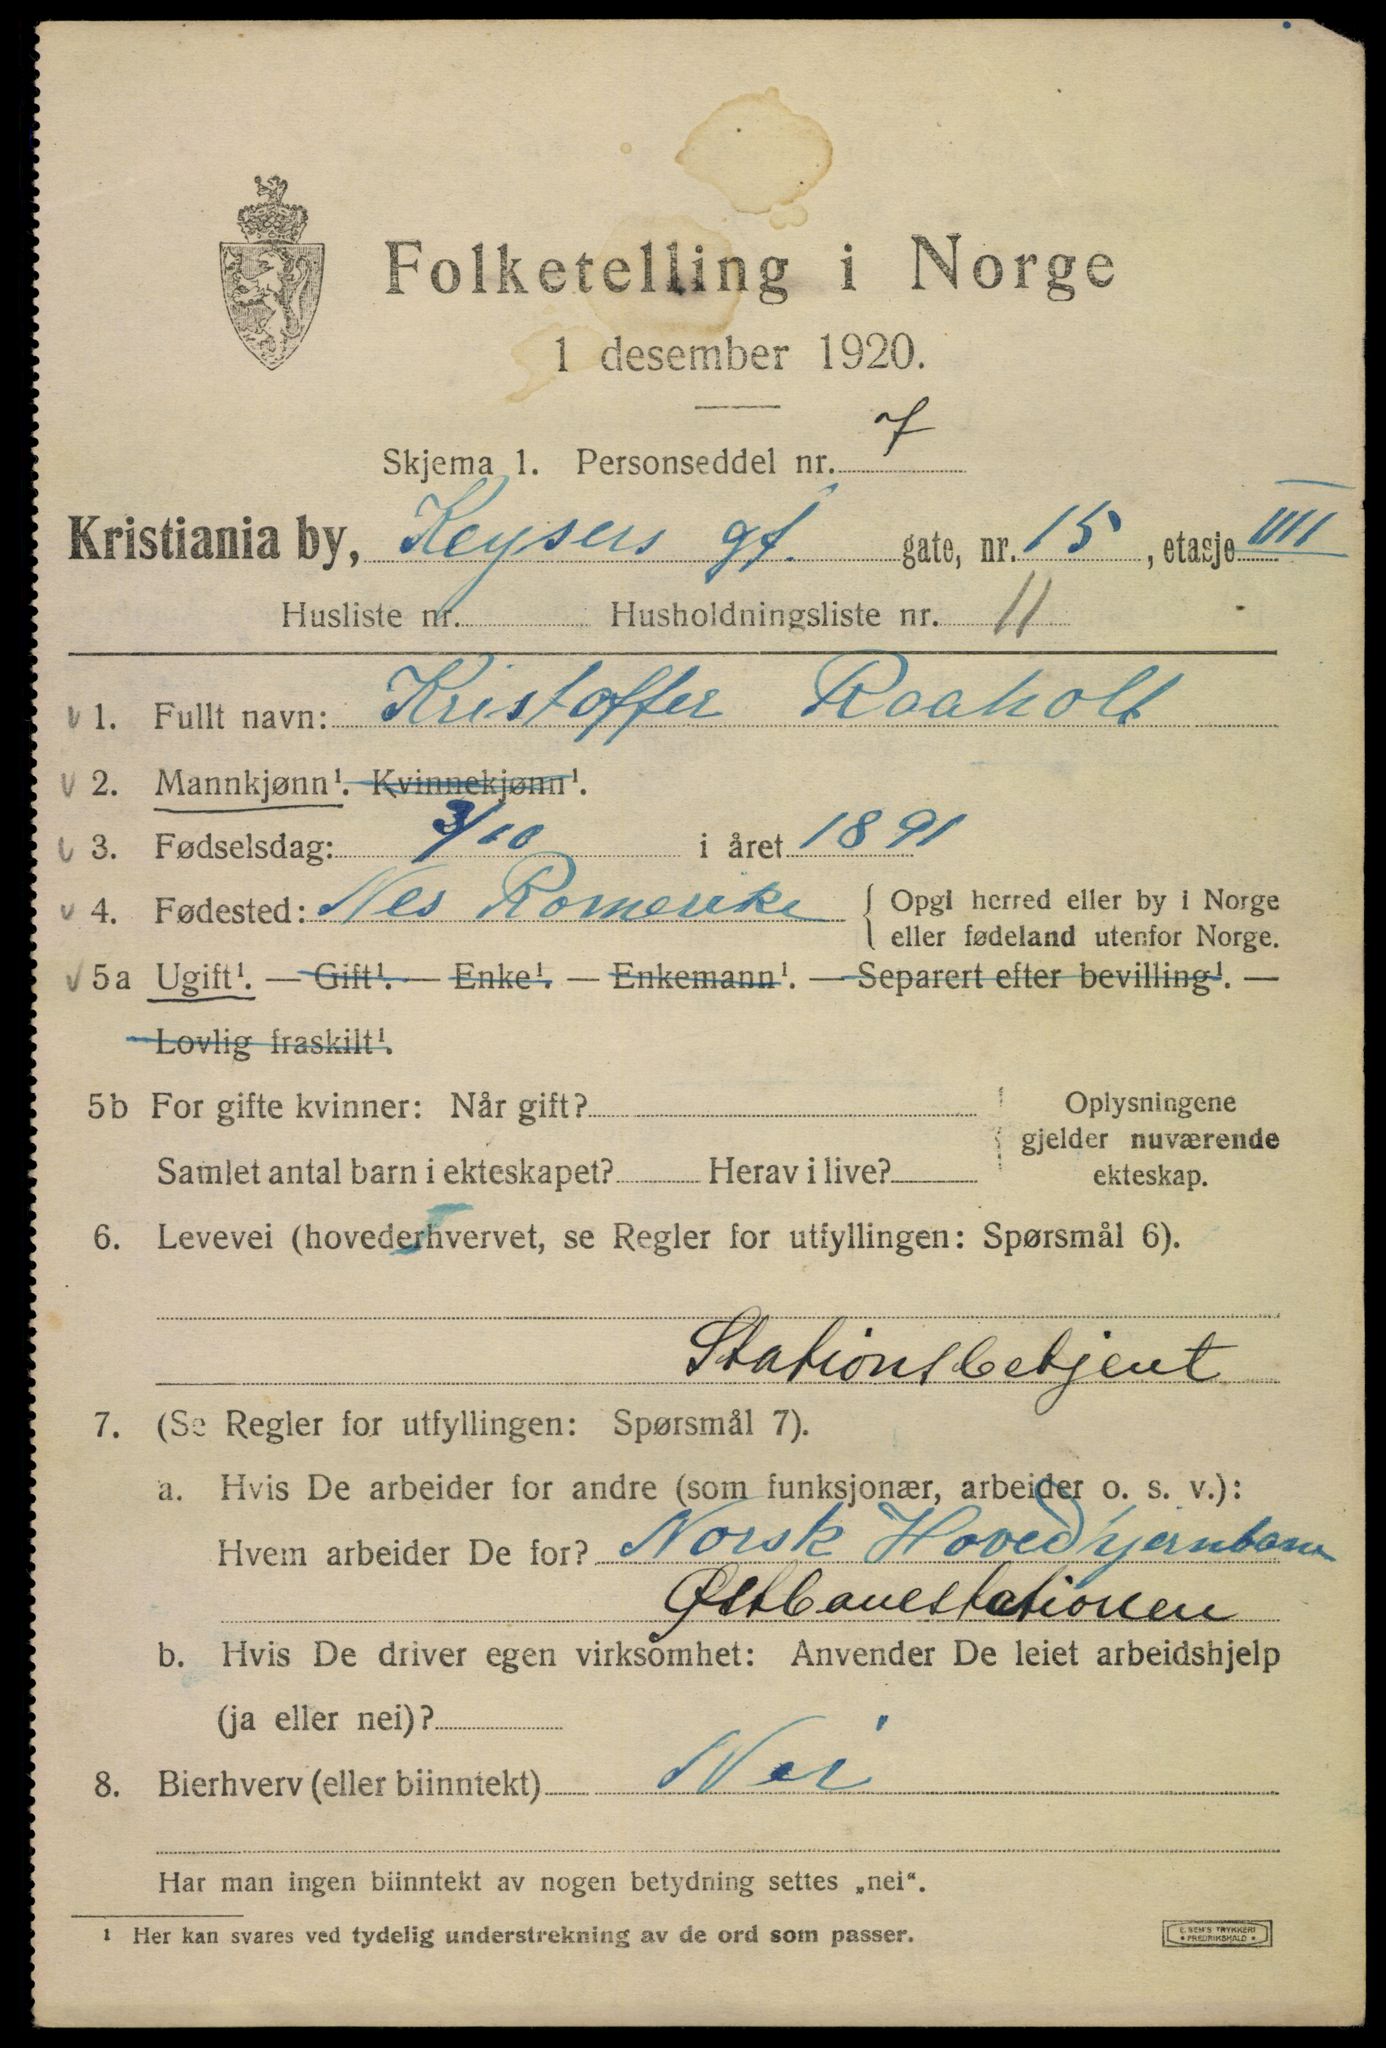 Folketelling i Norge
1 desember 1920.
Skjema 1. Personseddel nr. 7
Kristiania by, Keysers gt. gate, nr. 15, etasje IIII
Husliste nr. Husholdningsliste nr. 11
1. Fullt navn: Kristoffer Raaholt
2. Mannkjønn¹. Kvinnekjønn¹.
3. Fødselsdag: 3/10 i året 1891
4. Fødested: Nes Romerike { Opgi herred eller by i Norge
eller fødeland utenfor Norge.
5a Ugift¹. — Gift¹. — Enke¹. — Enkemann¹. — Separert efter bevilling¹. —
Lovlig fraskilt¹.
5b For gifte kvinner: Når gift?
Samlet antal barn i ekteskapet? Herav i live?
Oplysningene
gjelder nuværende
ekteskap.
6. Levevei (hovederhvervet, se Regler for utfyllingen: Spørsmål 6).
Stationsbetjent
7. (Se Regler for utfyllingen: Spørsmål 7).
a. Hvis De arbeider for andre (som funksjonær, arbeider o. s. v.):
Hvem arbeider De for? Norsk Hovedhjernbane
Østbanestationen
b. Hvis De driver egen virksomhet: Anvender De leiet arbeidshjelp
(ja eller nei)?
8. Bierhverv (eller biinntekt) Nei
Har man ingen biinntekt av nogen betydning settes „nei“.
¹ Her kan svares ved tydelig understrekning av de ord som passer.
E. SEM'S TRYKKERI
FREDRIKSHALD